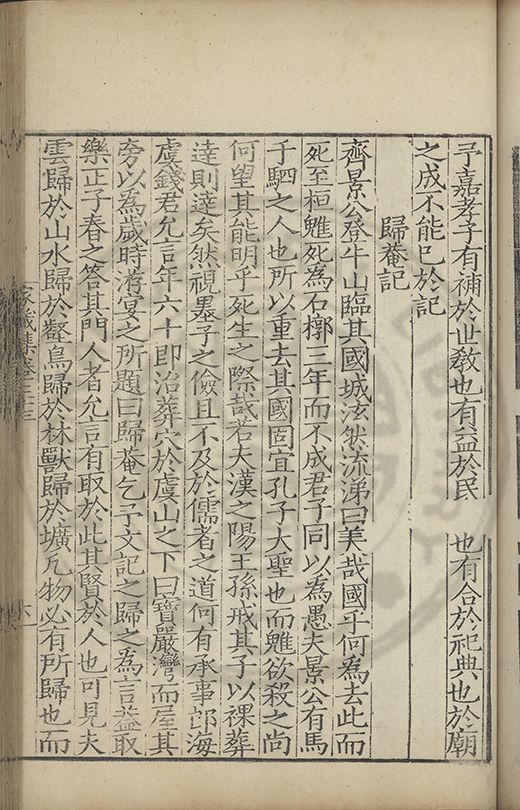 予嘉孝子有補於世敎也有益於民 也有合於祀典也於廟
之成不能已於記
歸菴記
齊景公登牛山臨其國城泫然流涕曰美哉國乎何爲去此而
死至桓魋死爲石槨三年而不成君子同以爲愚夫景公有馬
千駟之人也所以重去其國固宜孔子大聖也而魋欲殺之尚
何望其能明乎死生之際哉若夫漢之陽王孫戒其子以裸葬
達則達矣然視墨子之儉且不及於儒者之道何有承事郎海
虞錢君允言年六十即治葬穴於虞山之下曰寶嚴灣而屋其
旁以爲歲時游宴之所題曰歸菴乞予文記之歸之爲言葢取
樂正子春之答其門人者允言有取於此其賢於人也可見夫
雲歸於山水歸於壑鳥歸於林獸歸於壙凡物必有所歸也而
家藏集卷三十三
六